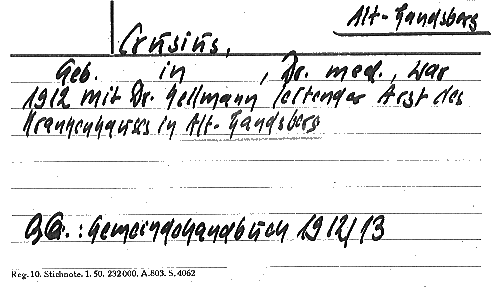 Alt-Landsberg
Crusius,
Geb. in , Dr. med., war
1912 mit Dr. Hellmann leitender Arzt des
Krankenhauses in Alt-Landsberg
Qu.: Gemeindehandbuch 1912/13
Reg. 10. Stichnote. 1. 50. 232000. A.803. S. 4062